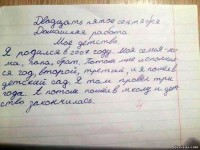 Двадцать пятое сентября
Домашняя работа
Моё детство.
Я родился в году. Моя семья-ма-
ма, папа, брат. Потом мне исполнил-
ся год, второй, третий, и я пошёл в
детский сад. Я там провёл три
года. А потом пошёл в школу и дет-
ство закончилась.